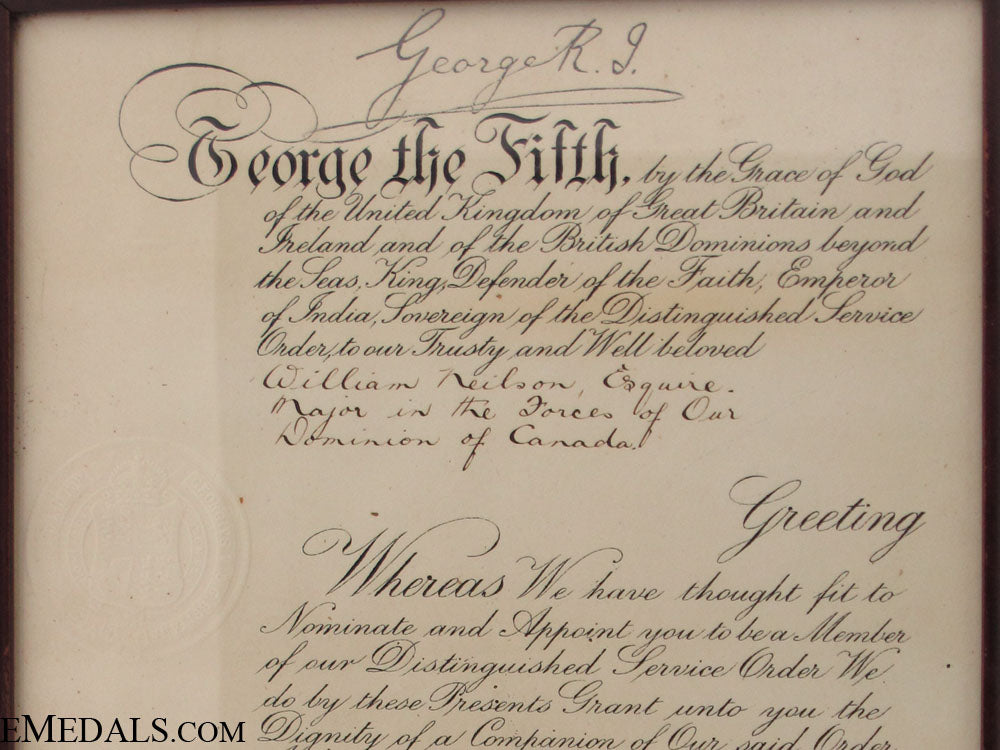 George R. I.
George the Fifth, by the Grace of God
of the United Kingdom of Great Britain and
Ireland and of the British Dominions beyond
the Seas, King, Defender of the Faith, Emperor
of India, Sovereign of the Distinguished Service
Order, to our Trusty and Well beloved
William Neilson, Esquire.
Major in the Forces of Our
Dominion of Canada.
Greeting
Whereas We have thought fit to
Nominate and Appoint you to be a Member
of our Distinguished Service Order We
do by these Presents Grant unto you the
Dignity of a Companion of Our said Order
EMEDALS.COM